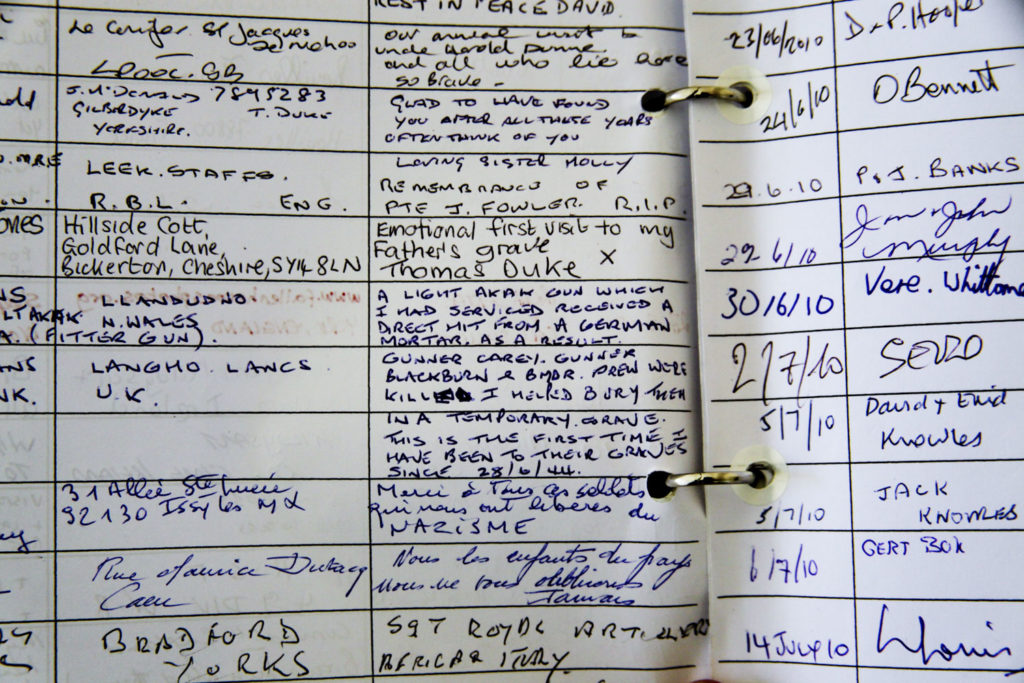 REST IN PEACE DAVID.
Le Conifer St Jacques
our annual visit to
uncle Harold Dunne
and all who lie here
so Brave -
J. McDonald 7898283
GILBERDYKE T. DUKE
YORKSHIRE.
GLAD TO HAVE FOUND
YOU AFTER ALL THESE YEARS
OFTEN THINK OF YOU
LOVING SISTER MOLLY
LEEK. STAFFS.
R.B.L. ENG.
REMEMBRANCE OF
PTE J. FOWLER. R.I.P.
Hillside Cott,
Goldford Lane,
Bickerton, Cheshire, SY14 8LN
Emotional first visit to my
Father's grave
Thomas Duke x
LLANDUDNO
N. WALES
(FITTER GUN).
A LIGHT AKAK GUN WHICH
I HAD SERVICED RECEIVED A
DIRECT HIT FROM A GERMAN
MORTAR. AS A RESULT.
LANGHO. LANCS
U.K.
GUNNER CAREY. GUNNER
BLACKBURN & BMDR. DREW WERE
KILLED I HELPED BURY THEM
IN A TEMPORARY GRAVE.
THIS IS THE FIRST TIME I
HAVE BEEN TO THEIR GRAVES
SINCE 28/6/44.
31 Allée Ste Lucie
92130 Issy les MX
Merci à Tous ces soldats
qui nous ont libérés du
NAZISME
Rue Maurice Dutacq
Caen
Nous les enfants du pays
nous ne vous oublierons
Jamais
BRADFORD
YORKS
SGT ROYAL ARTILLERY
AFRICA & ITALY
23/06/2010 D & P. Hooper
24/6/10 O Bennett
29.6.10 P & J. BANKS
29 6/10 Jean & John
Murphy
30/6/10 Vere. Whittome
2/7/10
5/7/10 David & Enid
Knowles
5/7/10 JACK
KNOWLES
6/7/10 GERT BOK
14 JULY 10